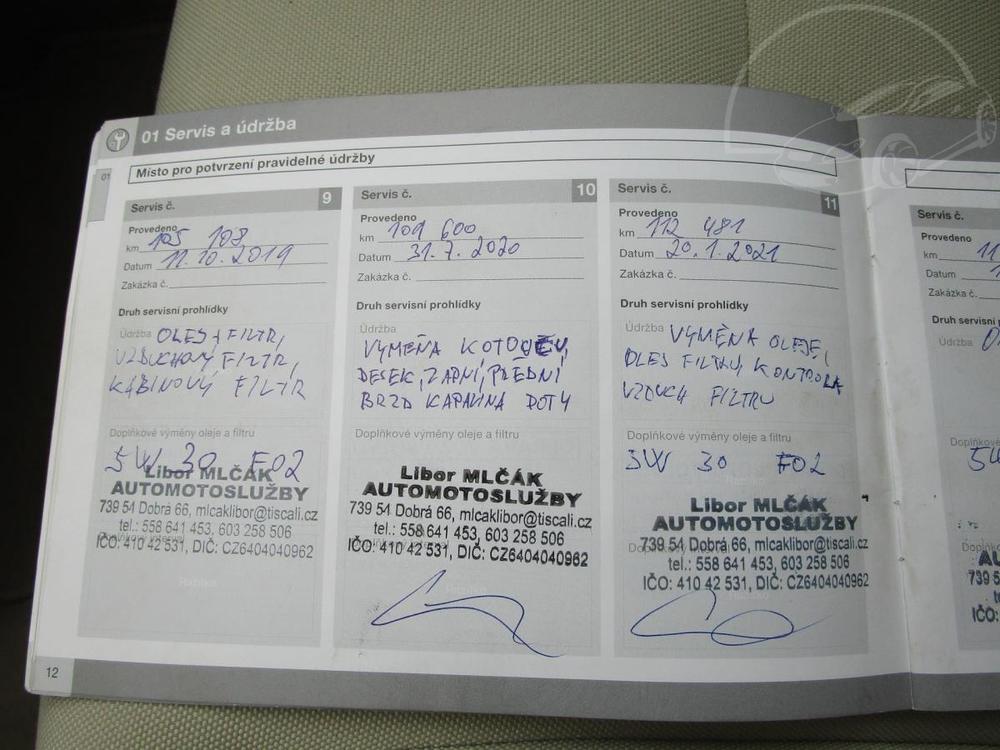 01 Servis a údržba
01
Místo pro potvrzení pravidelné údržby
Servis č. 9
Provedeno
km 105 108
Datum 11.10.2019
Zakázka č.
Druh servisní prohlídky
Údržba OLEJ + FILTR,
VZDUCHOVÝ FILTR,
KABINOVÝ FILTR
Doplňkové výměny oleje a filtru
5W 30 FO2
Libor MLČÁK
AUTOMOTOSLUŽBY
739 51 Dobrá 66, mlcaklibor@tiscali.cz
tel.: 558 641 453, 603 258 506
IČO: 410 42 531, DIČ: CZ6404040962
Razítko
Servis č. 10
Provedeno
km 109 600
Datum 31.7.2020
Zakázka č.
Druh servisní prohlídky
Údržba
VÝMĚNA KOTOUČŮ,
DESEK, ZADNÍ, PŘEDNÍ
BRZD KAPALINA DOT4
Doplňkové výměny oleje a filtru
Libor MLČÁK
AUTOMOTOSLUŽBY
739 51 Dobrá 66, mlcaklibor@tiscali.cz
tel.: 558 641 453, 603 258 506
IČO: 410 42 531, DIČ: CZ6404040962
Servis č. 11
Provedeno
km 112 481
Datum 20.1.2021
Zakázka č.
Druh servisní prohlídky
Údržba VÝMĚNA OLEJE,
OLEJ FILTRU, KONTROLA
VZDUCH FILTRU
Doplňkové výměny oleje a filtru
5W 30 FO2
Libor MLČÁK
AUTOMOTOSLUŽBY
739 51 Dobrá 66, mlcaklibor@tiscali.cz
tel.: 558 641 453, 603 258 506
IČO: 410 42 531, DIČ: CZ6404040962
Servis č.
Provedeno
km 11
Datum
Zakázka č.
Druh servisní
Údržba
5W
739 5
IČO:
12